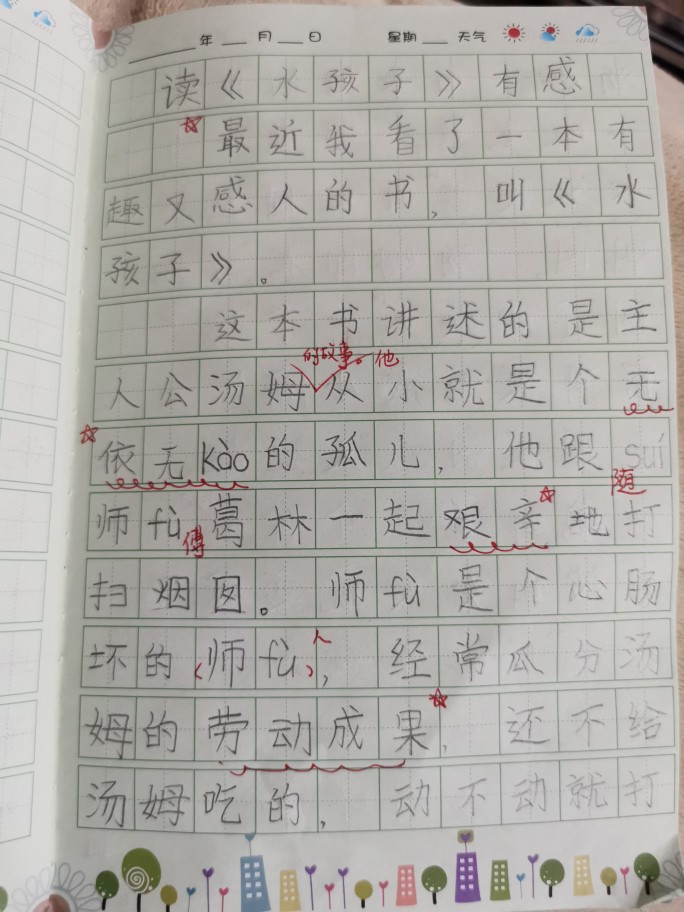 年 月 日 星期 天气
读《水孩子》有感
最近我看了一本有
趣又感人的书，叫《水
孩子》。
这本书讲述的是主
的故事。他
人公汤姆从小就是个无
依无kào的孤儿，他跟suí
随
师fù葛林一起艰辛地打
傅
扫烟囱。师fù是个心肠
人
坏的（师fù），经常瓜分汤
姆的劳动成果，还不给
汤姆吃的，动不动就打